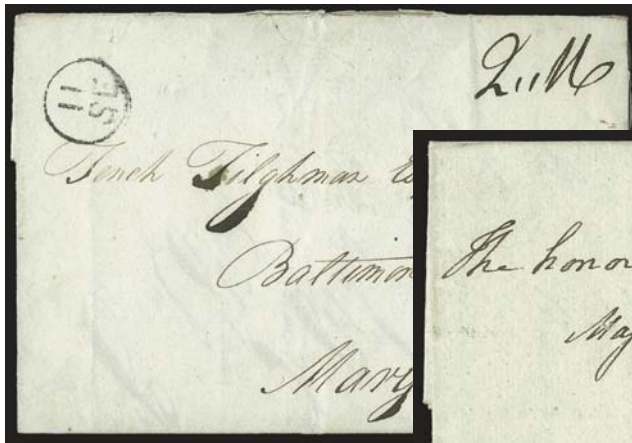 11
SE
2..16
Tench Tilghman
Baltimor
Mary
The honor
Maj